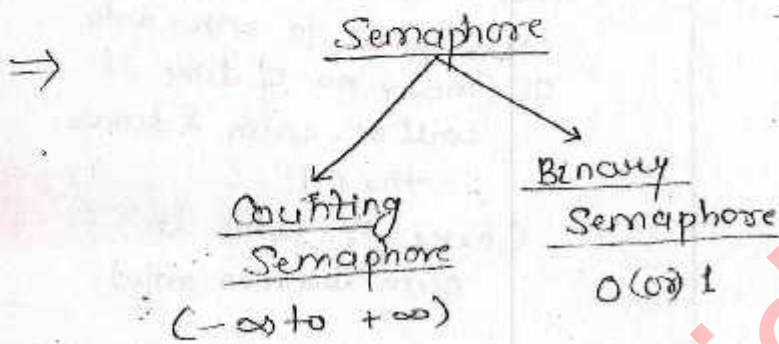 ⇒ Semaphore
Counting
Semaphore
(-∞ to +∞)
Binary
Semaphore
0 (or) 1